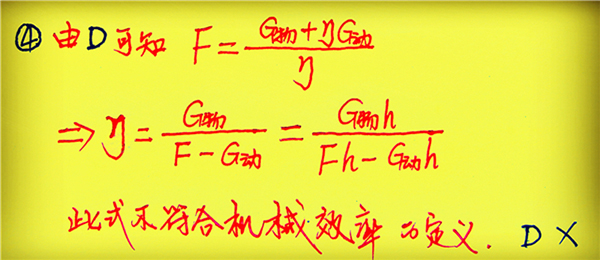 ④ 由D可知 F = (G物 + ηG动) / η
⇒ η = G物 / (F - G动) = G物h / (Fh - G动h)
此式不符合机械效率的定义. D ×